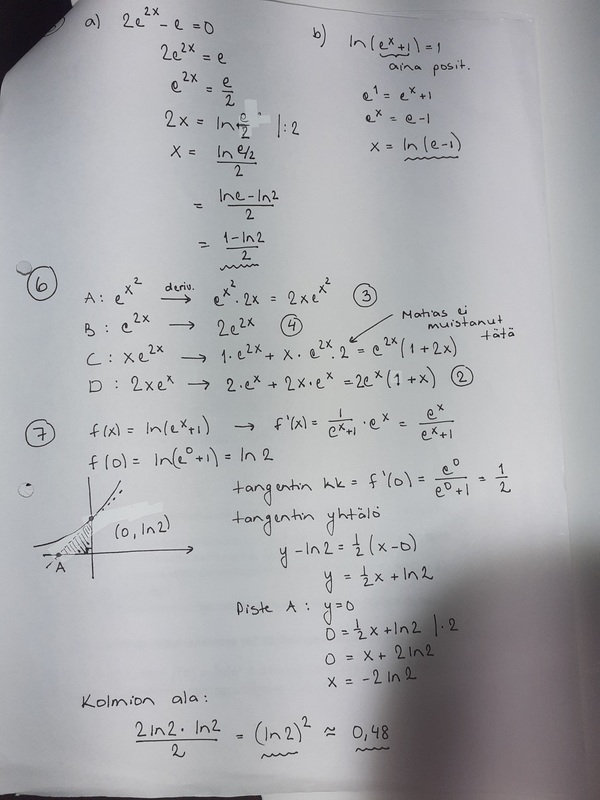 a) 2e^{2x} - e = 0
2e^{2x} = e
e^{2x} = e/2
2x = ln e/2 |:2
x = (ln e/2)/2
= (ln e - ln 2)/2
= (1 - ln 2)/2
b) ln(e^x + 1) = 1
aina posit.
e^1 = e^x + 1
e^x = e - 1
x = ln(e - 1)
6
A: e^{x^2} deriv. → e^{x^2} · 2x = 2xe^{x^2} 3
B: e^{2x} → 2e^{2x} 4
Matias ei
muistanut
tätä
C: xe^{2x} → 1·e^{2x} + x·e^{2x}·2 = e^{2x}(1 + 2x)
D: 2xe^x → 2·e^x + 2x·e^x = 2e^x(1 + x) 2
7
f(x) = ln(e^x + 1) → f'(x) = 1/(e^x + 1) · e^x = e^x/(e^x + 1)
f(0) = ln(e^0 + 1) = ln 2
tangentin kk = f'(0) = e^0/(e^0 + 1) = 1/2
(0, ln 2)
A
tangentin yhtälö
y - ln 2 = 1/2 (x - 0)
y = 1/2 x + ln 2
Piste A: y = 0
0 = 1/2 x + ln 2 |·2
0 = x + 2 ln 2
x = -2 ln 2
Kolmion ala:
(2 ln 2 · ln 2)/2 = (ln 2)^2 ≈ 0,48